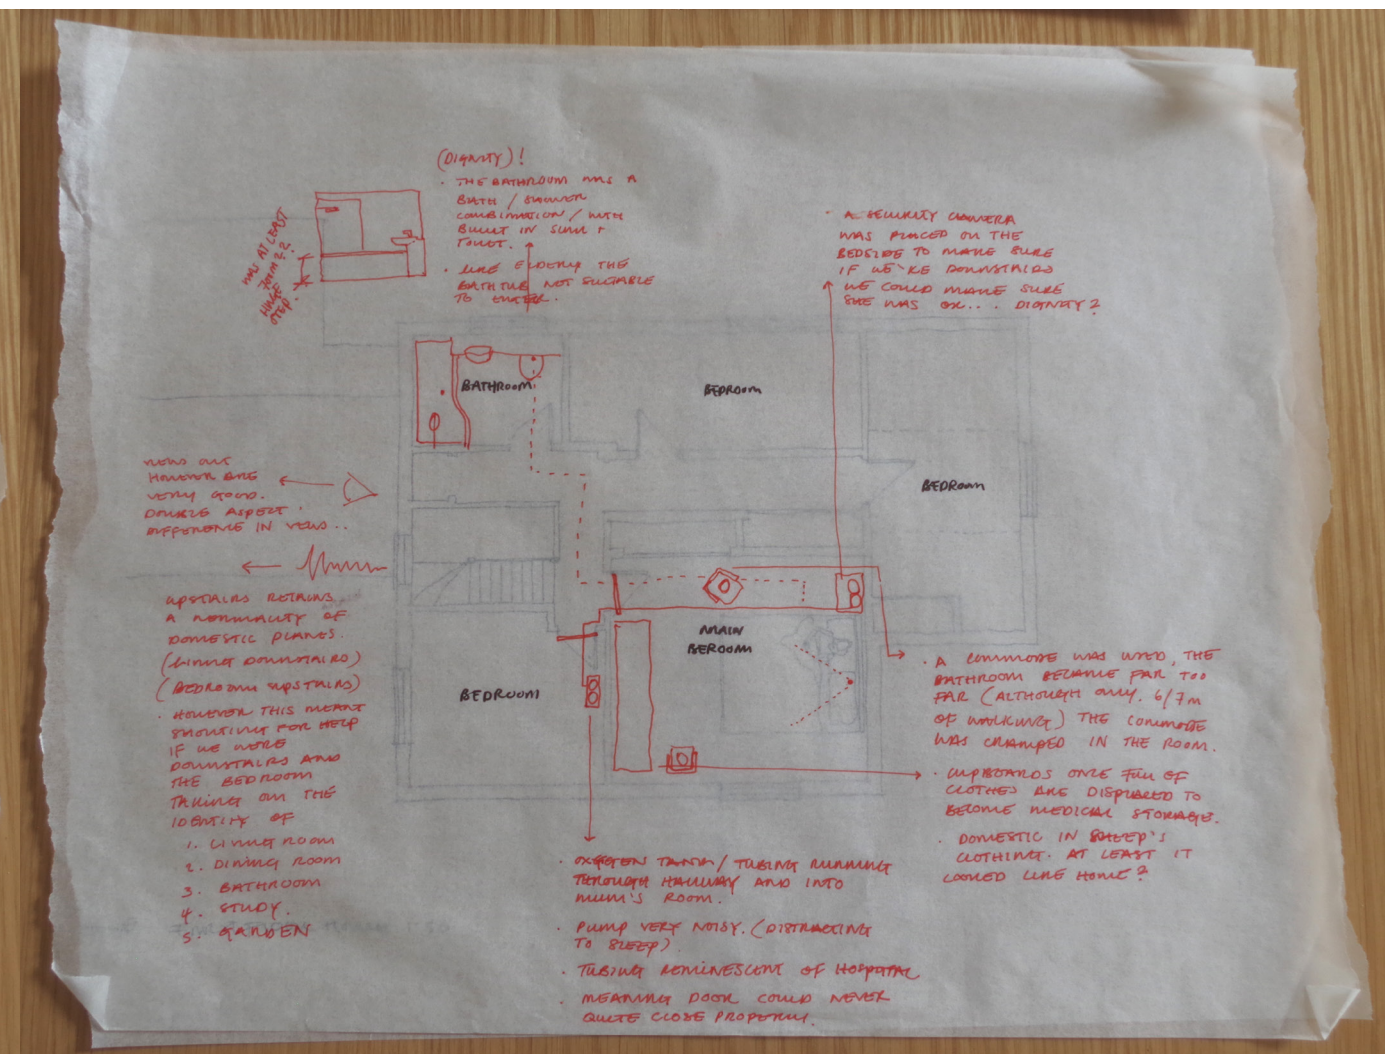 (DIGNITY)!
· THE BATHROOM WAS A
BATH / SHOWER
COMBINATION / WITH
BUILT IN SINK +
TOILET.
· LIKE ELDERLY THE
BATHTUB NOT SUITABLE
TO ENTER.
WAS AT LEAST
HUGE
STEP.
· A SECURITY CAMERA
WAS PLACED ON THE
BEDSIDE TO MAKE SURE
IF WE'RE DOWNSTAIRS
WE COULD MAKE SURE
SHE WAS OK... DIGNITY?
BATHROOM
BEDROOM
BEDROOM
VIEWS OUT
HOWEVER ARE
VERY GOOD.
DOUBLE ASPECT!
DIFFERENCE IN VIEWS..
UPSTAIRS RETAINS
A NORMALITY OF
DOMESTIC PLANES.
(LIVING DOWNSTAIRS)
(BEDROOM UPSTAIRS)
· HOWEVER THIS MEANT
SHOUTING FOR HELP
IF WE WERE
DOWNSTAIRS AND
THE BEDROOM
TAKING ON THE
IDENTITY OF
1. LIVING ROOM
2. DINING ROOM
3. BATHROOM
4. STUDY.
5. GARDEN
BEDROOM
MAIN
BEROOM
· A COMMODE WAS USED, THE
BATHROOM BECAME FAR TOO
FAR (ALTHOUGH ONLY. 6/7m
OF WALKING) THE COMMODE
WAS CRAMPED IN THE ROOM.
· CUPBOARDS ONCE FULL OF
CLOTHES ARE DISPLACED TO
BECOME MEDICAL STORAGE.
· DOMESTIC IN SHEEP'S
CLOTHING. AT LEAST IT
LOOKED LIKE HOME?
· OXYGEN TANK / TUBING RUNNING
THROUGH HALLWAY AND INTO
MUM'S ROOM.
· PUMP VERY NOISY. (DISTRACTING
TO SLEEP)
· TUBING REMINESCENT OF HOSPITAL
· MEANING DOOR COULD NEVER
QUITE CLOSE PROPERLY.